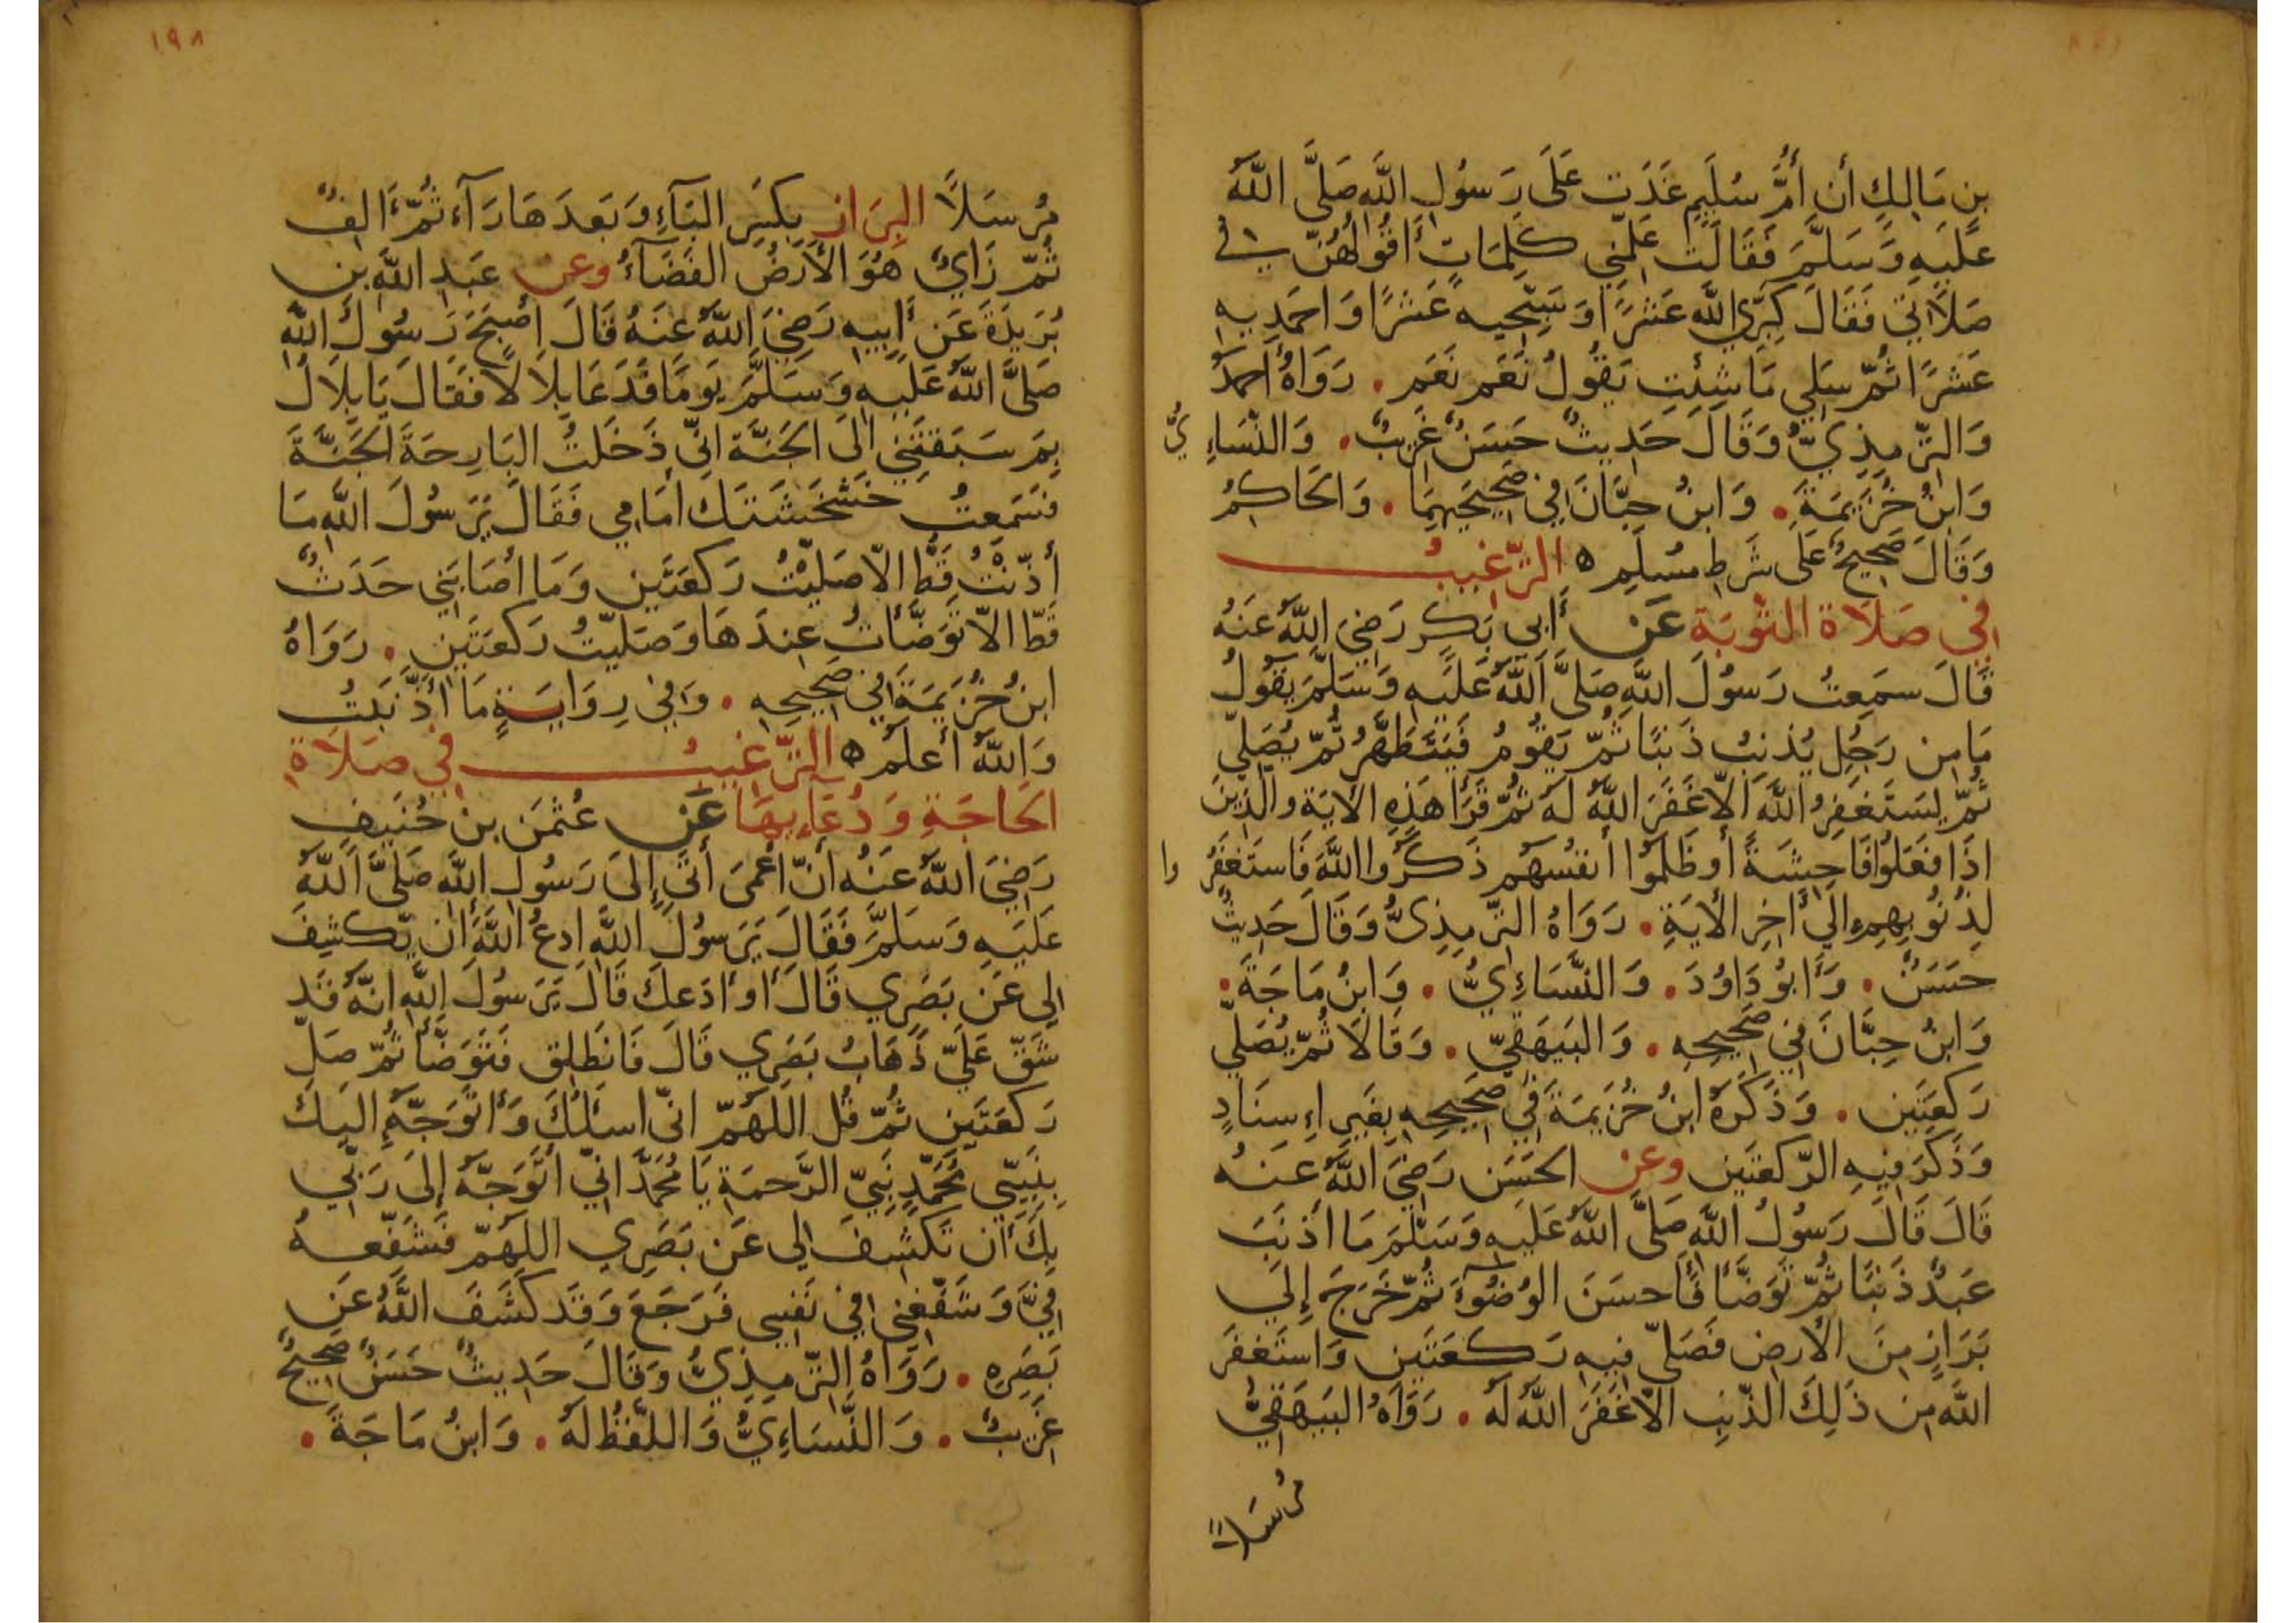 بِن مَالِكٍ أن أُمَّ سُلَيمٍ غَدَت عَلَى رَسُولِ اللَّهِ صَلَّى اللَّهُ
عَلَيهِ وَسَلَّمَ فَقَالَت عَلِّمنِي كَلِمَاتٍ أَقُولُهُنَّ في
صَلَاتي فَقَالَ كَبِّرِي اللَّه عَشرًا وَسَبِّحِيهِ عَشرًا وَاحمَدِيهِ
عَشرًا ثُمَّ سَلِي مَا شِئتِ يَقُولُ نَعَم نَعَم . رَوَاهُ أحمَدُ
وَالتِّرمِذِيُّ وَقَالَ حَدِيثٌ حَسَنٌ غَرِيبٌ . وَالنَّسَاءِيُّ
وَابنُ خُزَيمَةَ . وَابنُ حِبَّانَ فِي صَحِيحَيهِمَا . وَالحَاكِمُ
وَقَالَ صَحِيحٌ عَلَى شَرطِ مُسلِمٍ ه التَّرغِيبُ
فِي صَلَاةِ التَّوبَةِ عَن أَبِي بَكرٍ رَضِيَ اللَّهُ عَنهُ
قَالَ سَمِعتُ رَسُولَ اللَّهِ صَلَّى اللَّهُ عَلَيهِ وَسَلَّمَ يَقُولُ
مَا مِن رَجُلٍ يُذنِبُ ذَنبًا ثُمَّ يَقُومُ فَيَتَطَهَّرُ ثُمَّ يُصَلِّي
ثُمَّ يَستَغفِرُ اللَّهَ الَّا غَفَرَ اللَّهُ لَهُ ثُمَّ قَرَأَ هَذِهِ الأَيَةَ وَالَّذِينَ
اذَا فَعَلُوا فَاحِشَةً أَو ظَلَمُوا أَنفُسَهُم ذَكَرُوا اللَّهَ فَاستَغفَرُوا
لِذُنُوبِهِم الَى أَخِرِ الأَيَةِ . رَوَاهُ التِّرمِذِىُّ وَقَالَ حَدِيثٌ
حَسَنٌ . وَأَبُو دَاوُدَ . وَالنَّسَاءِيُّ . وَابنُ مَاجَةَ .
وَابنُ حِبَّانَ فِي صَحِيحِهِ . وَالبَيهَقِيّ . وَقَالَا ثُمَّ يُصَلِّي
رَكعَتَينِ . وَذَكَرَهُ ابنُ خُزَيمَةَ فِي صَحِيحِهِ بِغَيرِ اِسنَادٍ
وَذَكَرَ فِيهِ الرَّكعَتَينِ وعن الحَسَنِ رَضِيَ اللَّهُ عَنهُ
قَالَ قَالَ رَسُولُ اللَّهِ صَلَّى اللَّهُ عَلَيهِ وَسَلَّمَ مَا أَذنَبَ
عَبدٌ ذَنبًا ثُمَّ تَوَضَّأَ فَأَحسَنَ الوُضُوءَ ثُمَّ خَرَجَ إِلَى
بَرَازٍ مِنَ الأَرضِ فَصَلَّى فِيهِ رَكعَتَينِ وَاستَغفَرَ
اللَّهَ مِن ذَلِكَ الذَّنبِ الَّا غَفَرَ اللَّهُ لَهُ . رَوَاهُ البَيهَقِيُّ
مُرسَلًا
١٩٨
مُرسَلًا البِرَاز بِكَسرِ البَآءِ وَبَعدَهَا رَآءٌ ثُمَّ أَلِفٌ
ثُمَّ زَايٌ هُوَ الأَرضُ الفَضَآءُ وعن عَبدِ اللَّهِ بنِ
بُرَيدَةَ عَن أَبِيهِ رَضِيَ اللَّهُ عَنهُ قَالَ أَصبَحَ رَسُولُ اللَّهِ
صَلَّى اللَّهُ عَلَيهِ وَسَلَّمَ يَومًا فَدَعَا بِلَالًا فَقَالَ يَا بِلَالُ
بِمَ سَبَقتَنِي الَى الجَنَّةِ انِّي دَخَلتُ البَارِحَةَ الجَنَّةَ
فَسَمِعتُ خَشخَشَتَكَ أَمَامِي فَقَالَ يَرَسُولَ اللَّهِ مَا
أَذَّنتُ قَطُّ الَّا صَلَّيتُ رَكعَتَينِ وَمَا أَصَابَنِي حَدَثٌ
قَطُّ الَّا تَوَضَّأتُ عِندَهَا وَصَلَّيتُ رَكعَتَينِ . رَوَاهُ
ابنُ خُزَيمَةَ فِي صَحِيحِهِ . وَفِي رِوَايَةٍ مَا أَذنَبتُ
وَاللَّهُ أَعلَمُ ه التَّرغِيبُ فِي صَلَاةِ
الحَاجَةِ وَدُعَآءِهَا عَن عُثمَنَ بنِ حُنَيفٍ
رَضِيَ اللَّهُ عَنهُ أَنَّ أَعمَى أَتَى إِلَى رَسُولِ اللَّهِ صَلَّى اللَّهُ
عَلَيهِ وَسَلَّمَ فَقَالَ يَرَسُولَ اللَّهِ ادعُ اللَّهَ ان يَكشِفَ
لِي عَن بَصَرِي قَالَ أَو أَدَعكَ قَالَ يَرَسُولَ اللَّهِ انَّهُ قَد
شَقَّ عَلَيَّ ذَهَابُ بَصَرِي قَالَ فَانطَلِق فَتَوَضَّأ ثُمَّ صَلِّ
رَكعَتَينِ ثُمَّ قُل اللَّهُمَّ انِّي اسئَلُكَ وَأَتَوَجَّهُ الَيكَ
بِنَبِيِّي مُحَمَّدٍ نَبِيِّ الرَّحمَةِ يَا مُحَمَّدُ انِّي أَتَوَجَّهُ إِلَى رَبِّي
بِكَ أَن تَكشِفَ لِي عَن بَصَرِي اللَّهُمَّ فَشَفِّعهُ
فِيَّ وَشَفِّعنِي فِي نَفسِي فَرَجَعَ وَقَد كَشَفَ اللَّهُ عَن
بَصَرِهِ . رَوَاهُ التِّرمِذِيُّ وَقَالَ حَدِيثٌ حَسَنٌ صَحِيحٌ
غَرِيبٌ . وَالنَّسَاءِيُّ وَاللَّفظُ لَهُ . وَابنُ مَاجَةَ .